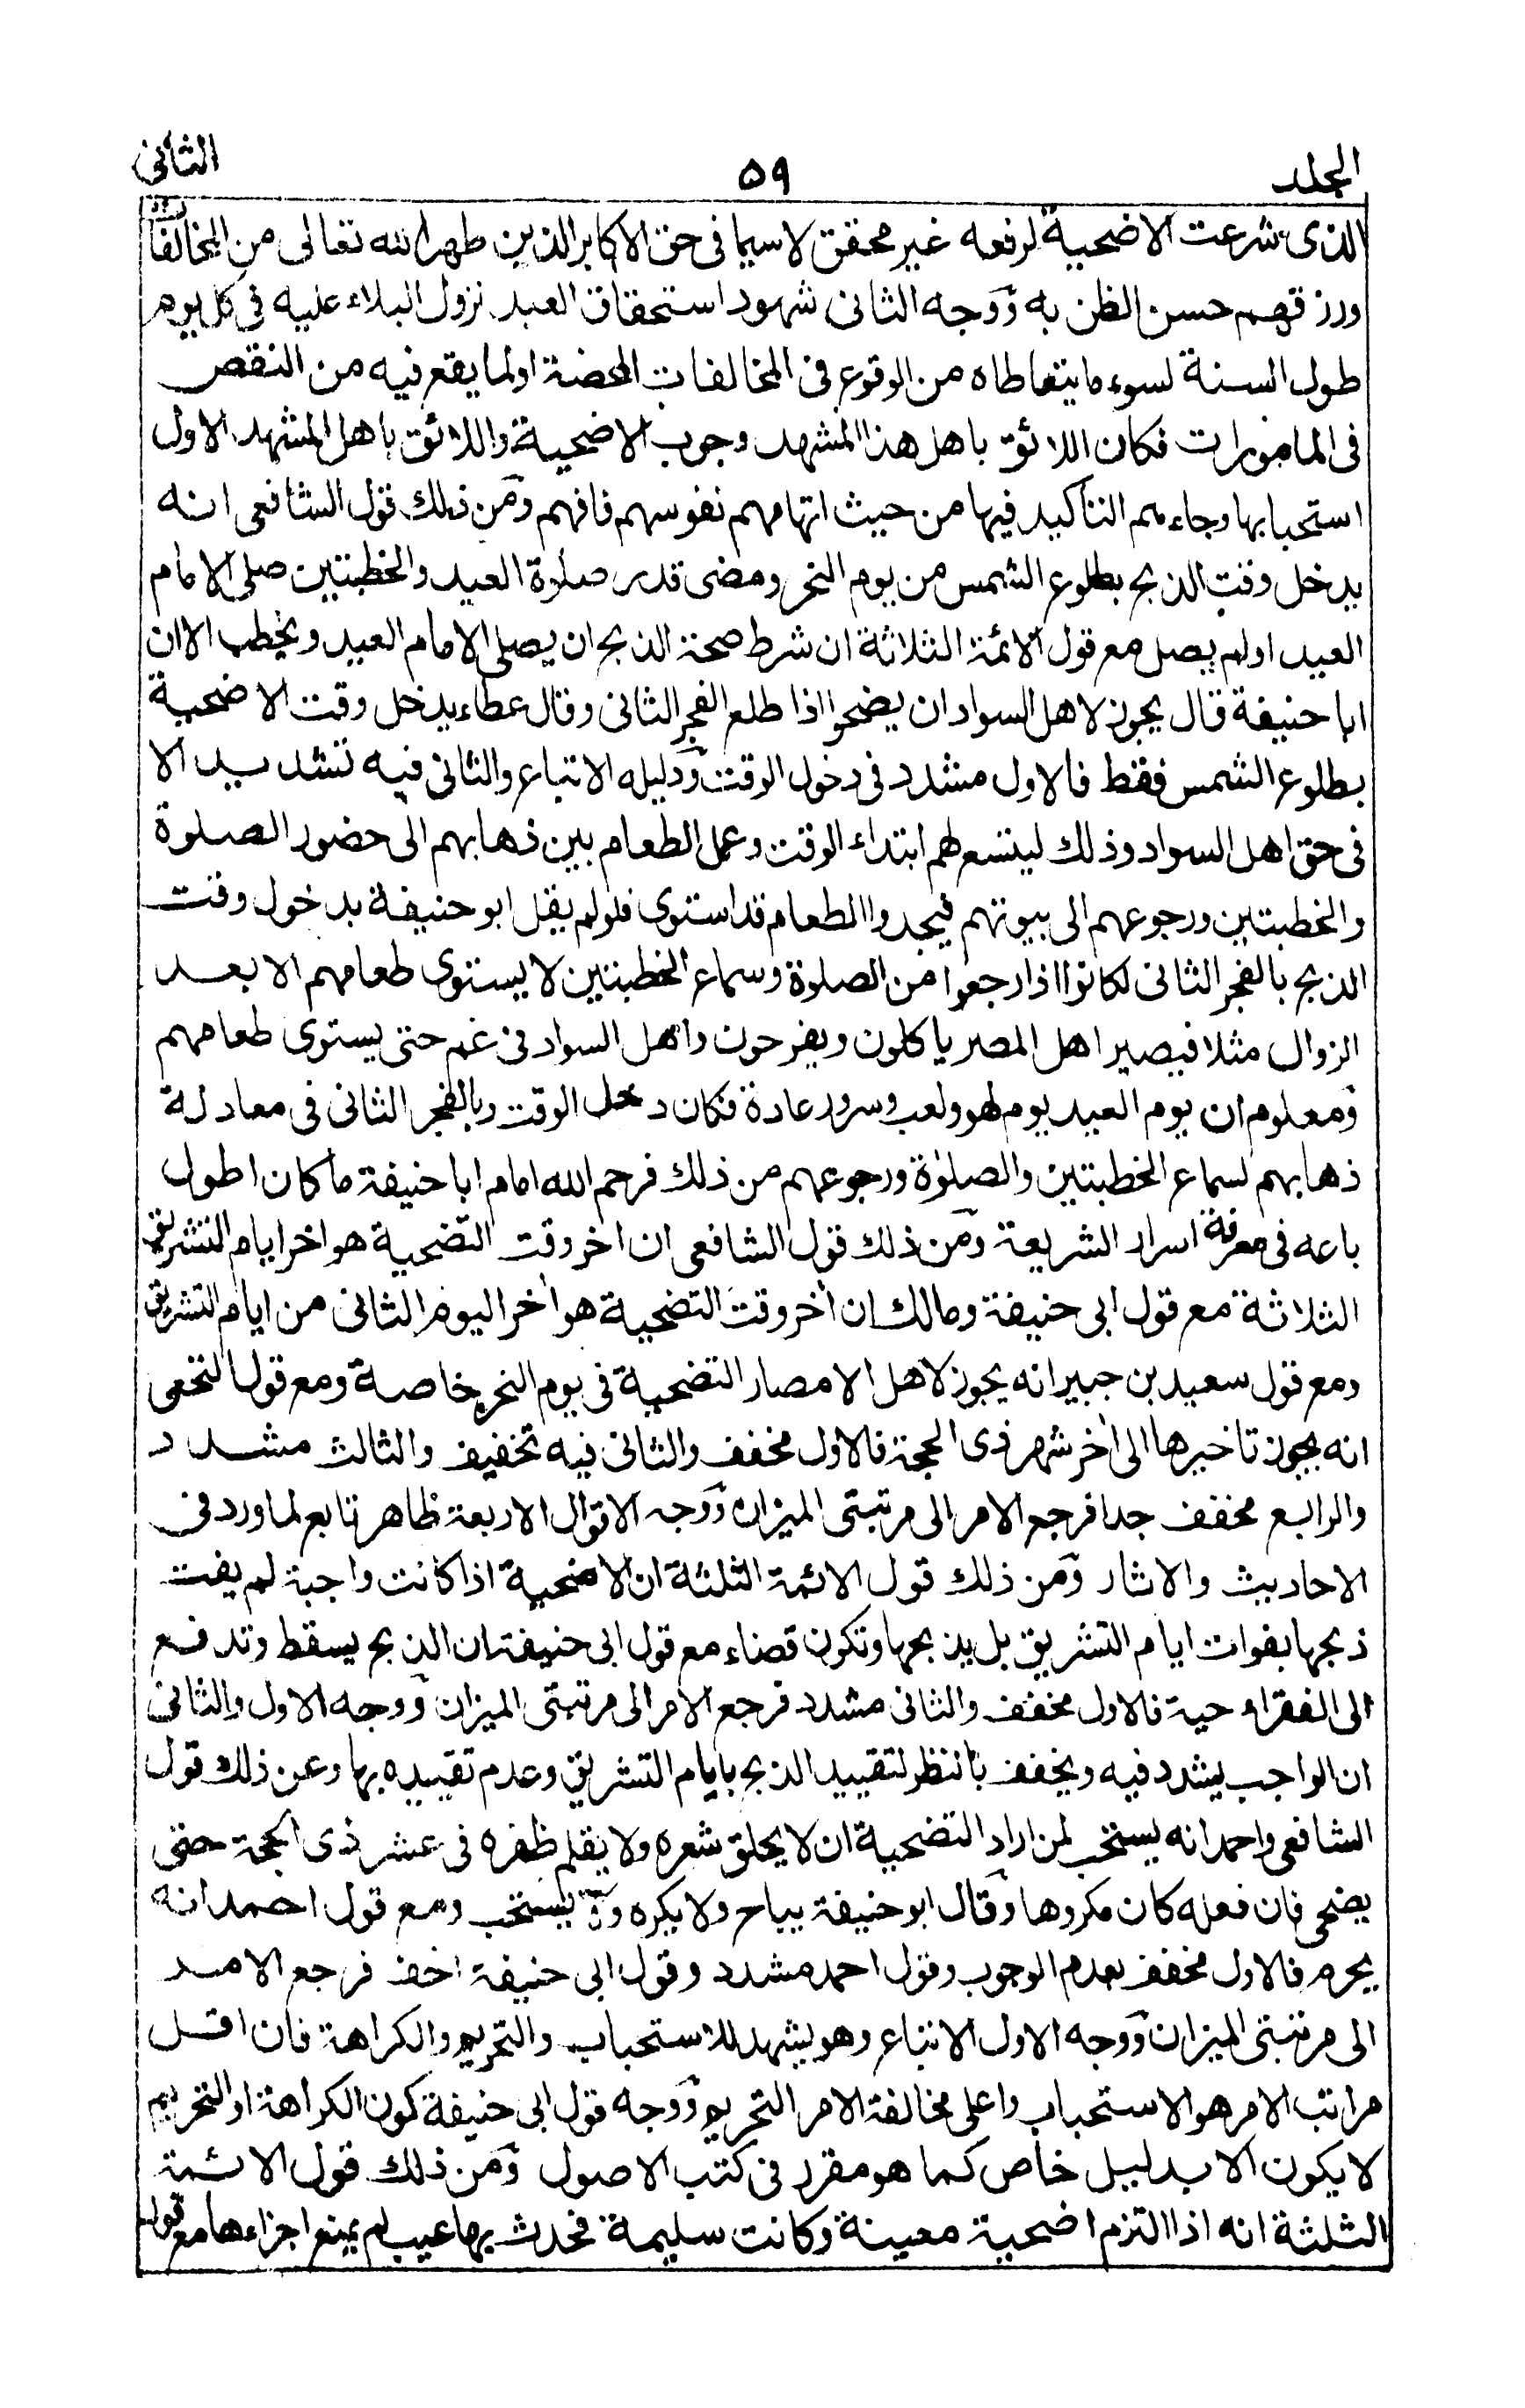 المجلد ۵۹ الثانى
الذى شرعت الاضحية لرفعه غير محقق لاسيما فى حق الاكابر الذين طهر الله تعالى من المخالفات
ورزقهم حسن الظن به ووجه الثانى شهود استحقاق العبد نزول البلاء عليه فى كل يوم
طول السنة لسوء ما يتعاطاه من الوقوع فى المخالفات المحضة او لما يقع فيه من النقص
فى المامورات فكان اللائق باهل هذا المشهد وجوب الاضحية واللائق باهل المشهد الاول
استحبابها وجاءهم التأكيد فيها من حيث اتهامهم نفوسهم فافهم ومن ذلك قول الشافعى انه
يدخل وقت الذبح بطلوع الشمس من يوم النحر ومضى قدر صلوة العيد والخطبتين صلى الامام
العيد اولم يصل مع قول الائمة الثلاثة ان شرط صحة الذبح ان يصلى الامام العيد ويخطب الا ان
ابا حنيفة قال يجوز لاهل السواد ان يضحوا اذا طلع الفجر الثانى وقال عطاء يدخل وقت الاضحية
بطلوع الشمس فقط فالاول مشدد فى دخول الوقت ودليله الاتباع والثانى فيه تشديد الا
فى حق اهل السواد وذلك ليتسع لهم ابتداء الوقت وعمل الطعام بين ذهابهم الى حضور الصلوة
والخطبتين ورجوعهم الى بيوتهم فيجدوا الطعام قد استوى فلولم يقل ابو حنيفة بدخول وقت
الذبح بالفجر الثانى لكانوا اذا رجعوا من الصلوة وسماع الخطبتين لا يستوى طعامهم الا بعد
الزوال مثلا فيصير اهل المصر ياكلون ويفرحون واهل السواد فى غم حتى يستوى طعامهم
ومعلوم ان يوم العيد يوم لهو ولعب وسرور عادة فكان دخل الوقت بالفجر الثانى فى معادلة
ذهابهم لسماع الخطبتين والصلوة ورجوعهم من ذلك فرحم الله امام ابا حنيفة ما كان اطول
باعه فى معرفة اسرار الشريعة ومن ذلك قول الشافعى ان اخر وقت التضحية هو اخر ايام التشريق
الثلاثة مع قول ابى حنيفة ومالك ان أخر وقت التضحية هو أخر اليوم الثانى من ايام التشريق
ومع قول سعيد بن جبير انه يجوز لاهل الامصار التضحية فى يوم النحر خاصة ومع قول النخعى
انه يجوز تاخيرها الى أخر شهر ذى الحجة فالاول مخفف والثانى فيه تخفيف والثالث مشدد
والرابع مخفف جدا فرجع الامر الى مرتبتى الميزان ووجه الاقوال الاربعة ظاهر تابع لما ورد فى
الاحاديث والاثار ومن ذلك قول الائمة الثلثة ان الاضحية اذا كانت واجبة لم يفت
ذبحها بفوات ايام التشريق بل يذبحها وتكون قضاء مع قول ابى حنيفة ان الذبح يسقط وتدفع
الى الفقراء حية فالاول مخفف والثانى مشدد فرجع الامر الى مرتبتى الميزان ووجه الاول والثانى
ان الواجب يشدد فيه ويخفف بالنظر لتقييد الذبح بايام التشريق وعدم تقييده بها وعن ذلك قول
الشافعى واحمد انه يستحب لمن اراد التضحية ان لا يحلق شعره ولا يقلم ظفره فى عشر ذى الحجة حتى
يضحى فان فعله كان مكروها وقال ابو حنيفة يباح ولا يكره ولا يستحب ومع قول احمد انه
يحرم فالاول مخفف بعدم الوجوب وقول احمد مشدد وقول ابى حنيفة اخف فرجع الامر
الى مرتبتى الميزان ووجه الاول الاتباع وهو يشهد للاستحباب والتحريم والكراهة فان اقل
مراتب الامر هو الاستحباب واعلى مخالفة الامر التحريم ووجه قول ابى حنيفة كون الكراهة او التحريم
لا يكون الا بدليل خاص كما هو مقرر فى كتب الاصول ومن ذلك قول الائمة
الثلثة انه اذا التزم اضحية معينة وكانت سليمة فحدث بها عيب لم يمنع اجزاءها مع قول